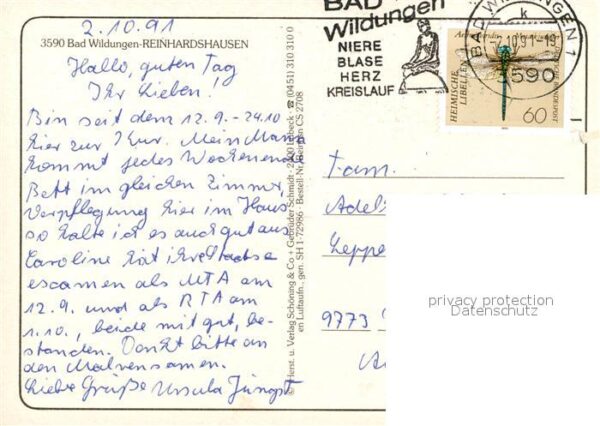 2.10.91
3590 Bad Wildungen-REINHARDSHAUSEN
Hallo, guten Tag
Ihr Lieben!
Bin seit dem 12.9. - 24.10
hier zur Kur. Mein Mann
kommt jedes Wochenend
Bett im gleichen Zimmer,
Verpflegung hier im Haus
so halte ich es auch gut aus
Caroline hat ihre
escamen als MTA am
12.9. und als RTA am
1.10., beide mit gut, be-
standen. Denkt bitte an
den Malvensamen.
Liebe Grüße Ursula
© Herst. u. Verlag Schöning & Co + Gebrüder Schmidt · 2400 Lübeck · ☎ (0451) 310 310 0
en Luftaufn., gen. SH 1-72986 · Bestell-Nr. CS 2708
BAD
Wildungen
NIERE
BLASE
HERZ
KREISLAUF
BAD WILDUNGEN 1
k
10.91-19
3590
HEIMISCHE
LIBELLEN
60
Fam.
Adel
Zeppe
9773
privacy protection
Datenschutz